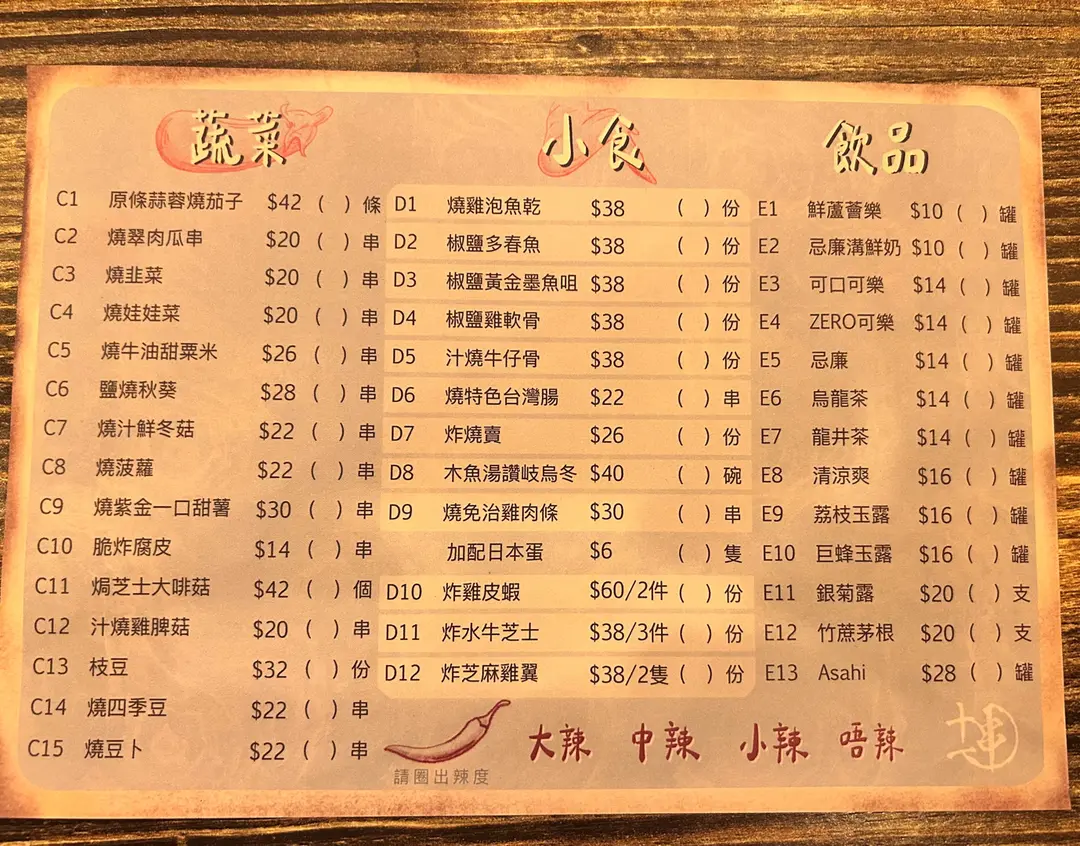 蔬菜
C1 原條蒜蓉燒茄子 $42 ( ) 條
C2 燒翠肉瓜串 $20 ( ) 串
C3 燒韭菜 $20 ( ) 串
C4 燒娃娃菜 $20 ( ) 串
C5 燒牛油甜粟米 $26 ( ) 串
C6 鹽燒秋葵 $28 ( ) 串
C7 燒汁鮮冬菇 $22 ( ) 串
C8 燒菠蘿 $22 ( ) 串
C9 燒紫金一口甜薯 $30 ( ) 串
C10 脆炸腐皮 $14 ( ) 串
C11 焗芝士大啡菇 $42 ( ) 個
C12 汁燒雞髀菇 $20 ( ) 串
C13 枝豆 $32 ( ) 份
C14 燒四季豆 $22 ( ) 串
C15 燒豆卜 $22 ( ) 串
小食
D1 燒雞泡魚乾 $38 ( ) 份
D2 椒鹽多春魚 $38 ( ) 份
D3 椒鹽黃金墨魚咀 $38 ( ) 份
D4 椒鹽雞軟骨 $38 ( ) 份
D5 汁燒牛仔骨 $38 ( ) 份
D6 燒特色台灣腸 $22 ( ) 串
D7 炸燒賣 $26 ( ) 份
D8 木魚湯讚岐烏冬 $40 ( ) 碗
D9 燒免治雞肉條 $30 ( ) 串
加配日本蛋 $6 ( ) 隻
D10 炸雞皮蝦 $60/2件 ( ) 份
D11 炸水牛芝士 $38/3件 ( ) 份
D12 炸芝麻雞翼 $38/2隻 ( ) 份
飲品
E1 鮮蘆薈樂 $10 ( ) 罐
E2 忌廉溝鮮奶 $10 ( ) 罐
E3 可口可樂 $14 ( ) 罐
E4 ZERO可樂 $14 ( ) 罐
E5 忌廉 $14 ( ) 罐
E6 烏龍茶 $14 ( ) 罐
E7 龍井茶 $14 ( ) 罐
E8 清涼爽 $16 ( ) 罐
E9 荔枝玉露 $16 ( ) 罐
E10 巨蜂玉露 $16 ( ) 罐
E11 銀菊露 $20 ( ) 支
E12 竹蔗茅根 $20 ( ) 支
E13 Asahi $28 ( ) 罐
請圈出辣度
大辣 中辣 小辣 唔辣